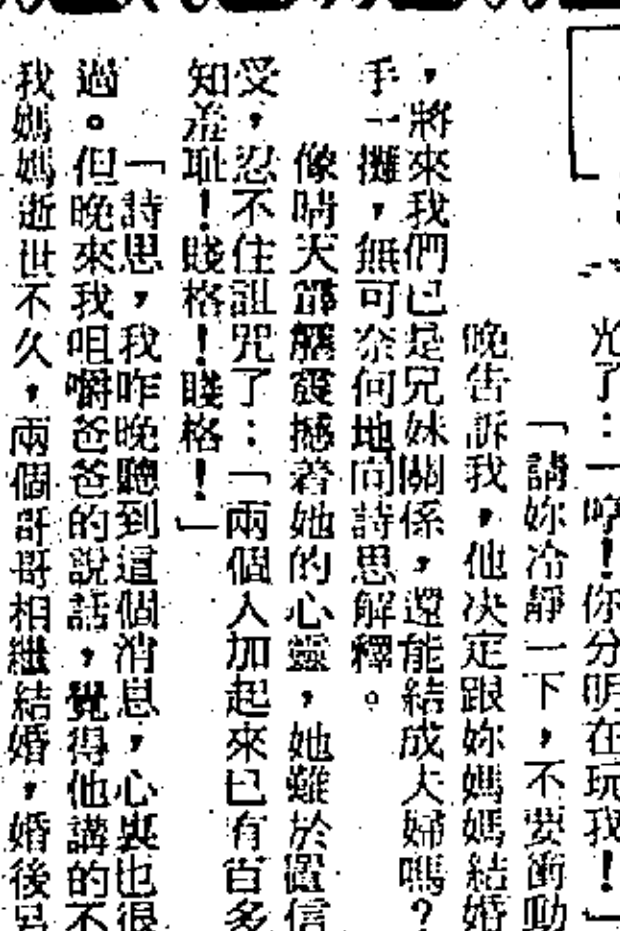 光了：「哼！你分明在玩我！」
「請妳冷靜一下，不要衝動
晚告訴我，他決定跟妳媽媽結婚
，將來我們已是兄妹關係，還能結成夫婦嗎？
手一攤，無可奈何地向詩思解釋。
像晴天霹靂震撼着她的心靈，她難於置信
受，忍不住詛咒了：「兩個人加起來已有百多
知羞恥！賤格！賤格！」
「詩思，我昨晚聽到這個消息，心裏也很
過。但晚來我咀嚼爸爸的說話，覺得他講的不
我媽媽逝世不久，兩個哥哥相繼結婚，婚後另